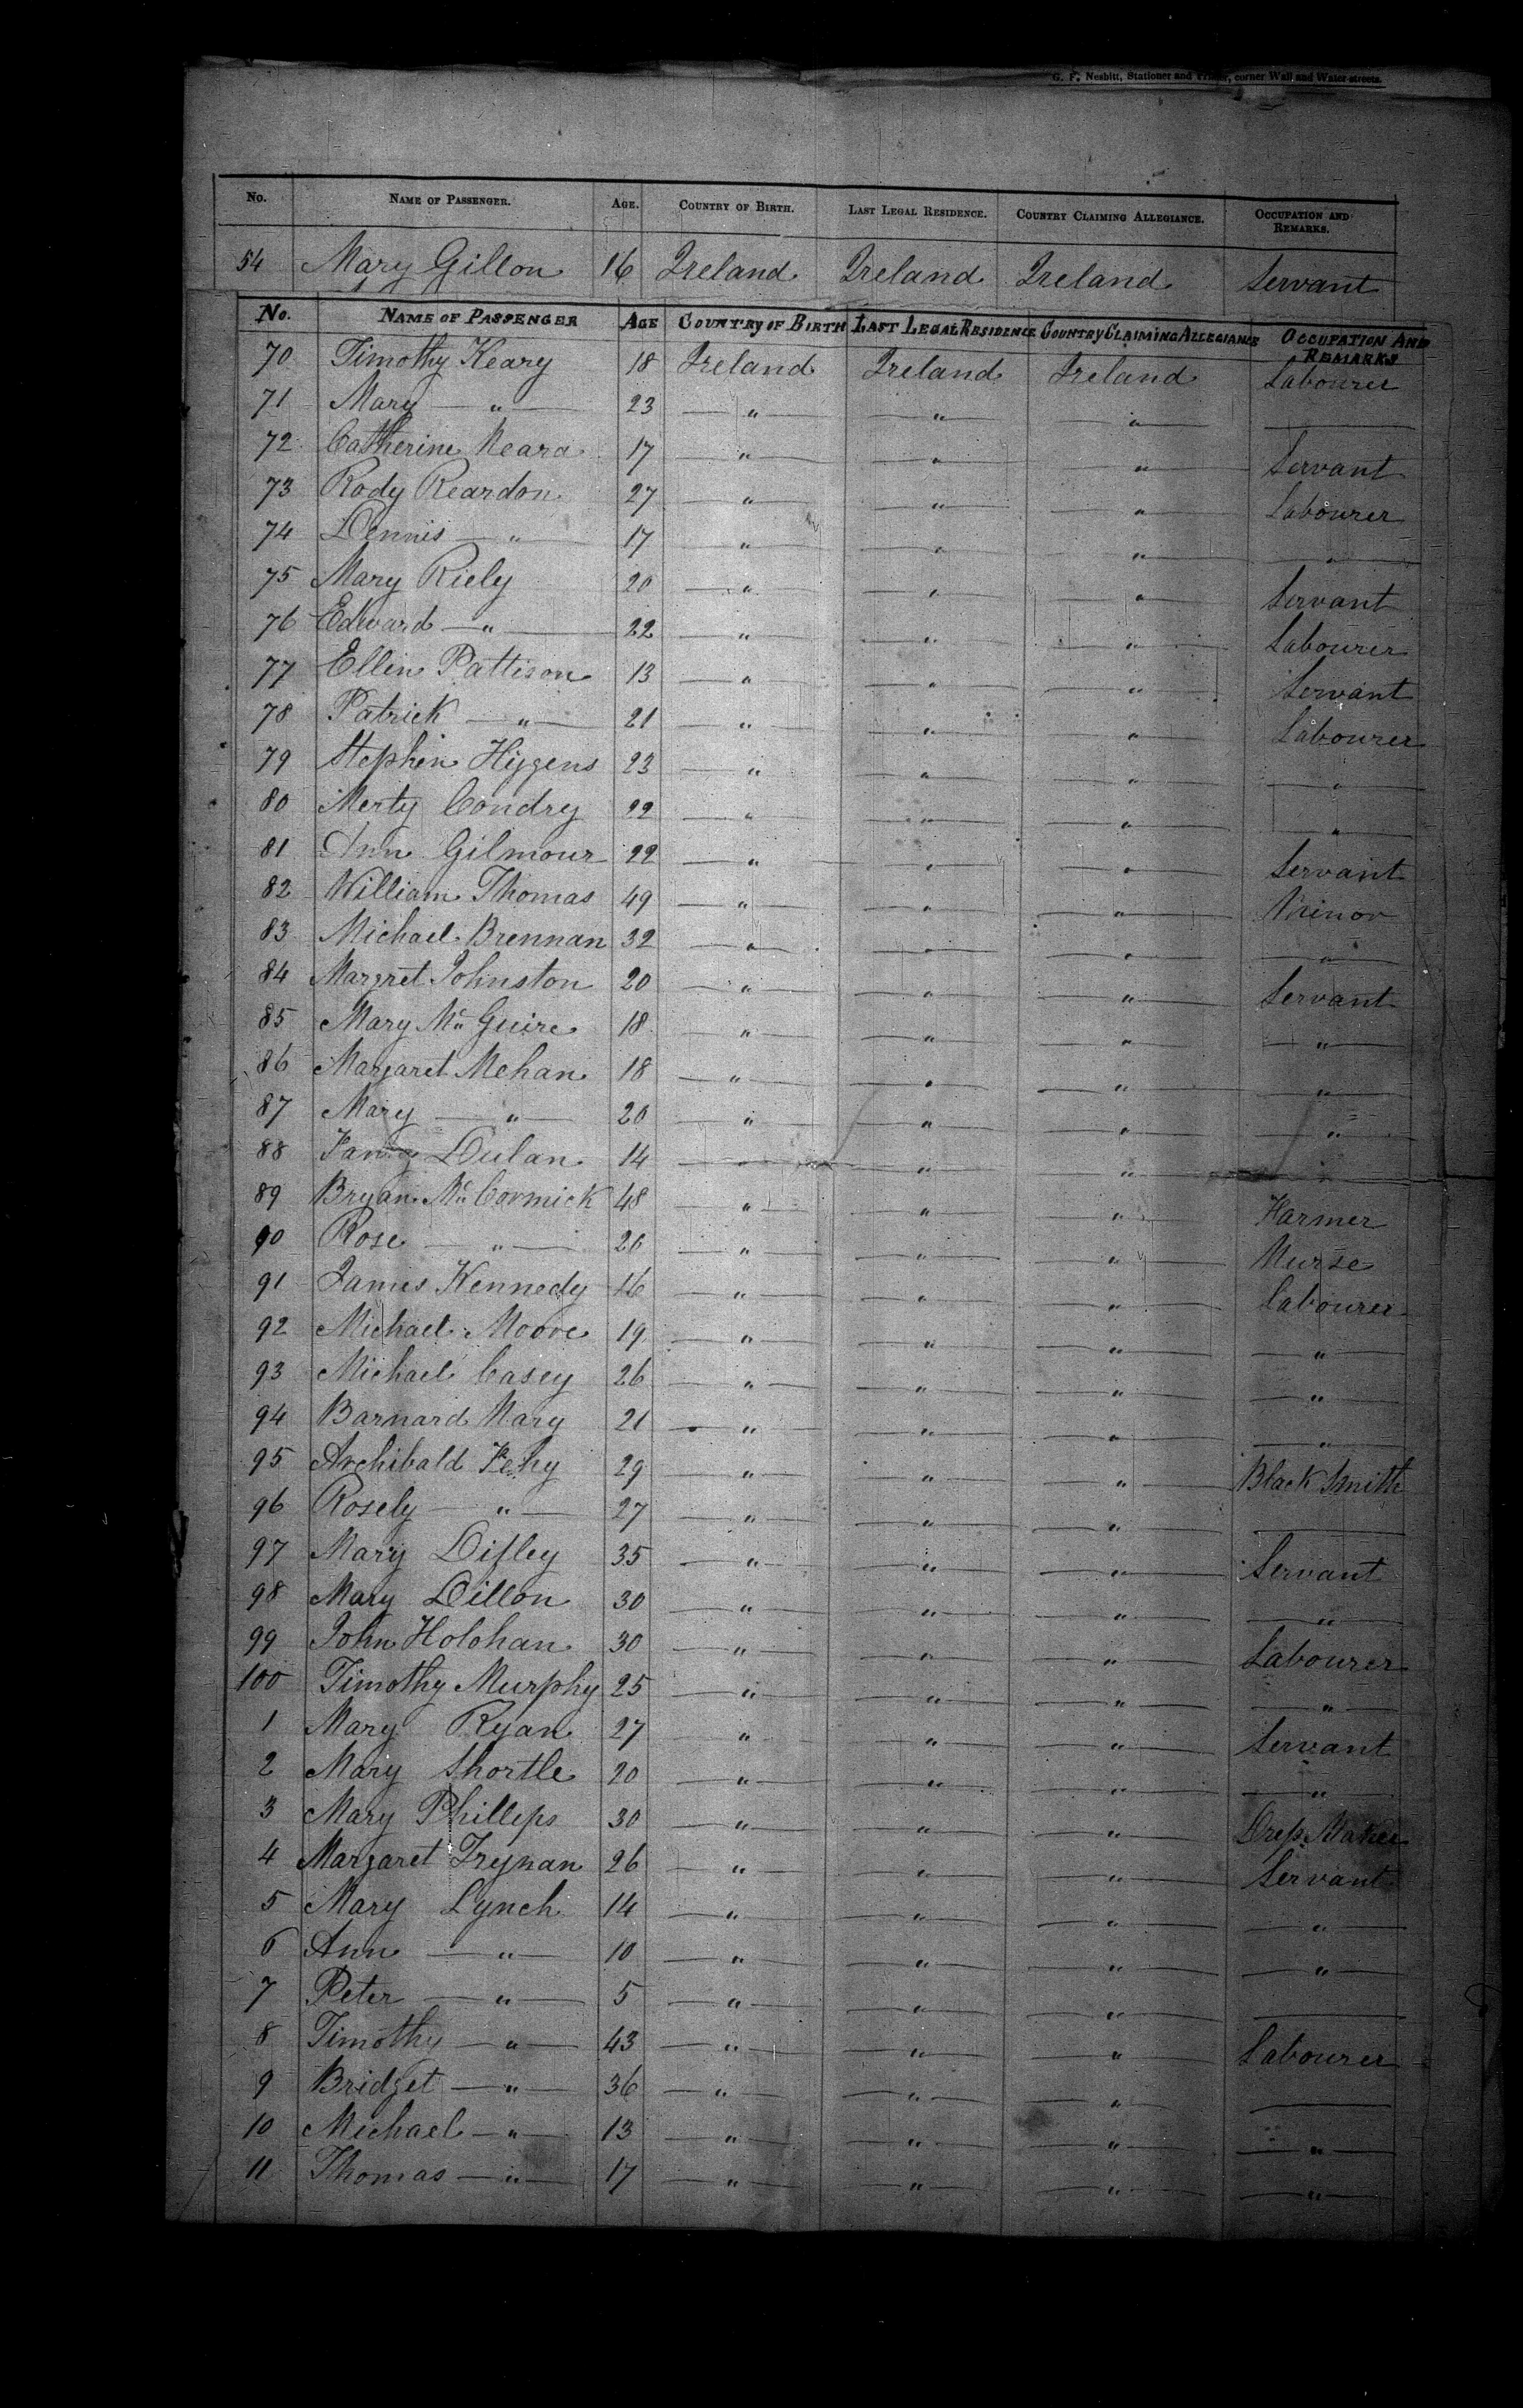 G. F. Nesbitt, Stationer and Printer, corner Wall and Water streets.
No. NAME OF PASSENGER. AGE. COUNTRY OF BIRTH. LAST LEGAL RESIDENCE. COUNTRY CLAIMING ALLEGIANCE. OCCUPATION AND REMARKS.
54 Mary Gillon 16 Ireland Ireland Ireland Servant
No. NAME OF PASSENGER AGE COUNTRY OF BIRTH LAST LEGAL RESIDENCE COUNTRY CLAIMING ALLEGIANCE OCCUPATION AND REMARKS
70 Timothy Keary 18 Ireland Ireland Ireland Labourer
71 Mary — " — 23 — " — — " — — " — —
72 Catherine Neara 17 — " — — " — — " — Servant
73 Rody Reardon 27 — " — — " — — " — Labourer
74 Dennis — " — 17 — " — — " — — " — — " —
75 Mary Riely 20 — " — — " — — " — Servant
76 Edward — " — 22 — " — — " — — " — Labourer
77 Ellen Pattison 13 — " — — " — — " — Servant
78 Patrick — " — 21 — " — — " — — " — Labourer
79 Stephen Higgens 23 — " — — " — — " — — " —
80 Merty Condry 22 — " — — " — — " — — " —
81 Ann Gilmour 22 — " — — " — — " — Servant
82 William Thomas 49 — " — — " — — " — Minor
83 Michael Brennan 32 — " — — " — — " — — " —
84 Margret Johnston 20 — " — — " — — " — Servant
85 Mary Mc Guire 18 — " — — " — — " — — " —
86 Margaret Mehan 18 — " — — " — — " — — " —
87 Mary — " — 20 — " — — " — — " — — " —
88 Fanny Dulan 14 — " — — " — — " — — " —
89 Bryan Mc Cormick 48 — " — — " — — " — Farmer
90 Rose — " — 20 — " — — " — — " — Nurse
91 James Kennedy 16 — " — — " — — " — Labourer
92 Michael Moore 19 — " — — " — — " — — " —
93 Michael Casey 26 — " — — " — — " — — " —
94 Barnard Nary 21 — " — — " — — " — — " —
95 Archibald Fehy 29 — " — — " — — " — Black Smith
96 Rosely — " — 27 — " — — " — — " — —
97 Mary Difley 35 — " — — " — — " — Servant
98 Mary Dillon 30 — " — — " — — " — — " —
99 John Holohan 30 — " — — " — — " — Labourer
100 Timothy Murphy 25 — " — — " — — " — — " —
1 Mary Ryan 27 — " — — " — — " — Servant
2 Mary Shortle 20 — " — — " — — " — — " —
3 Mary Phillips 30 — " — — " — — " — Dress Maker
4 Margaret Trynan 26 — " — — " — — " — Servant
5 Mary Lynch 14 — " — — " — — " — — " —
6 Ann — " — 10 — " — — " — — " — — " —
7 Peter — " — 5 — " — — " — — " — —
8 Timothy — " — 43 — " — — " — — " — Labourer
9 Bridget — " — 36 — " — — " — — " — —
10 Michael — " — 13 — " — — " — — " — — " —
11 Thomas — " — 17 — " — — " — — " — — " —